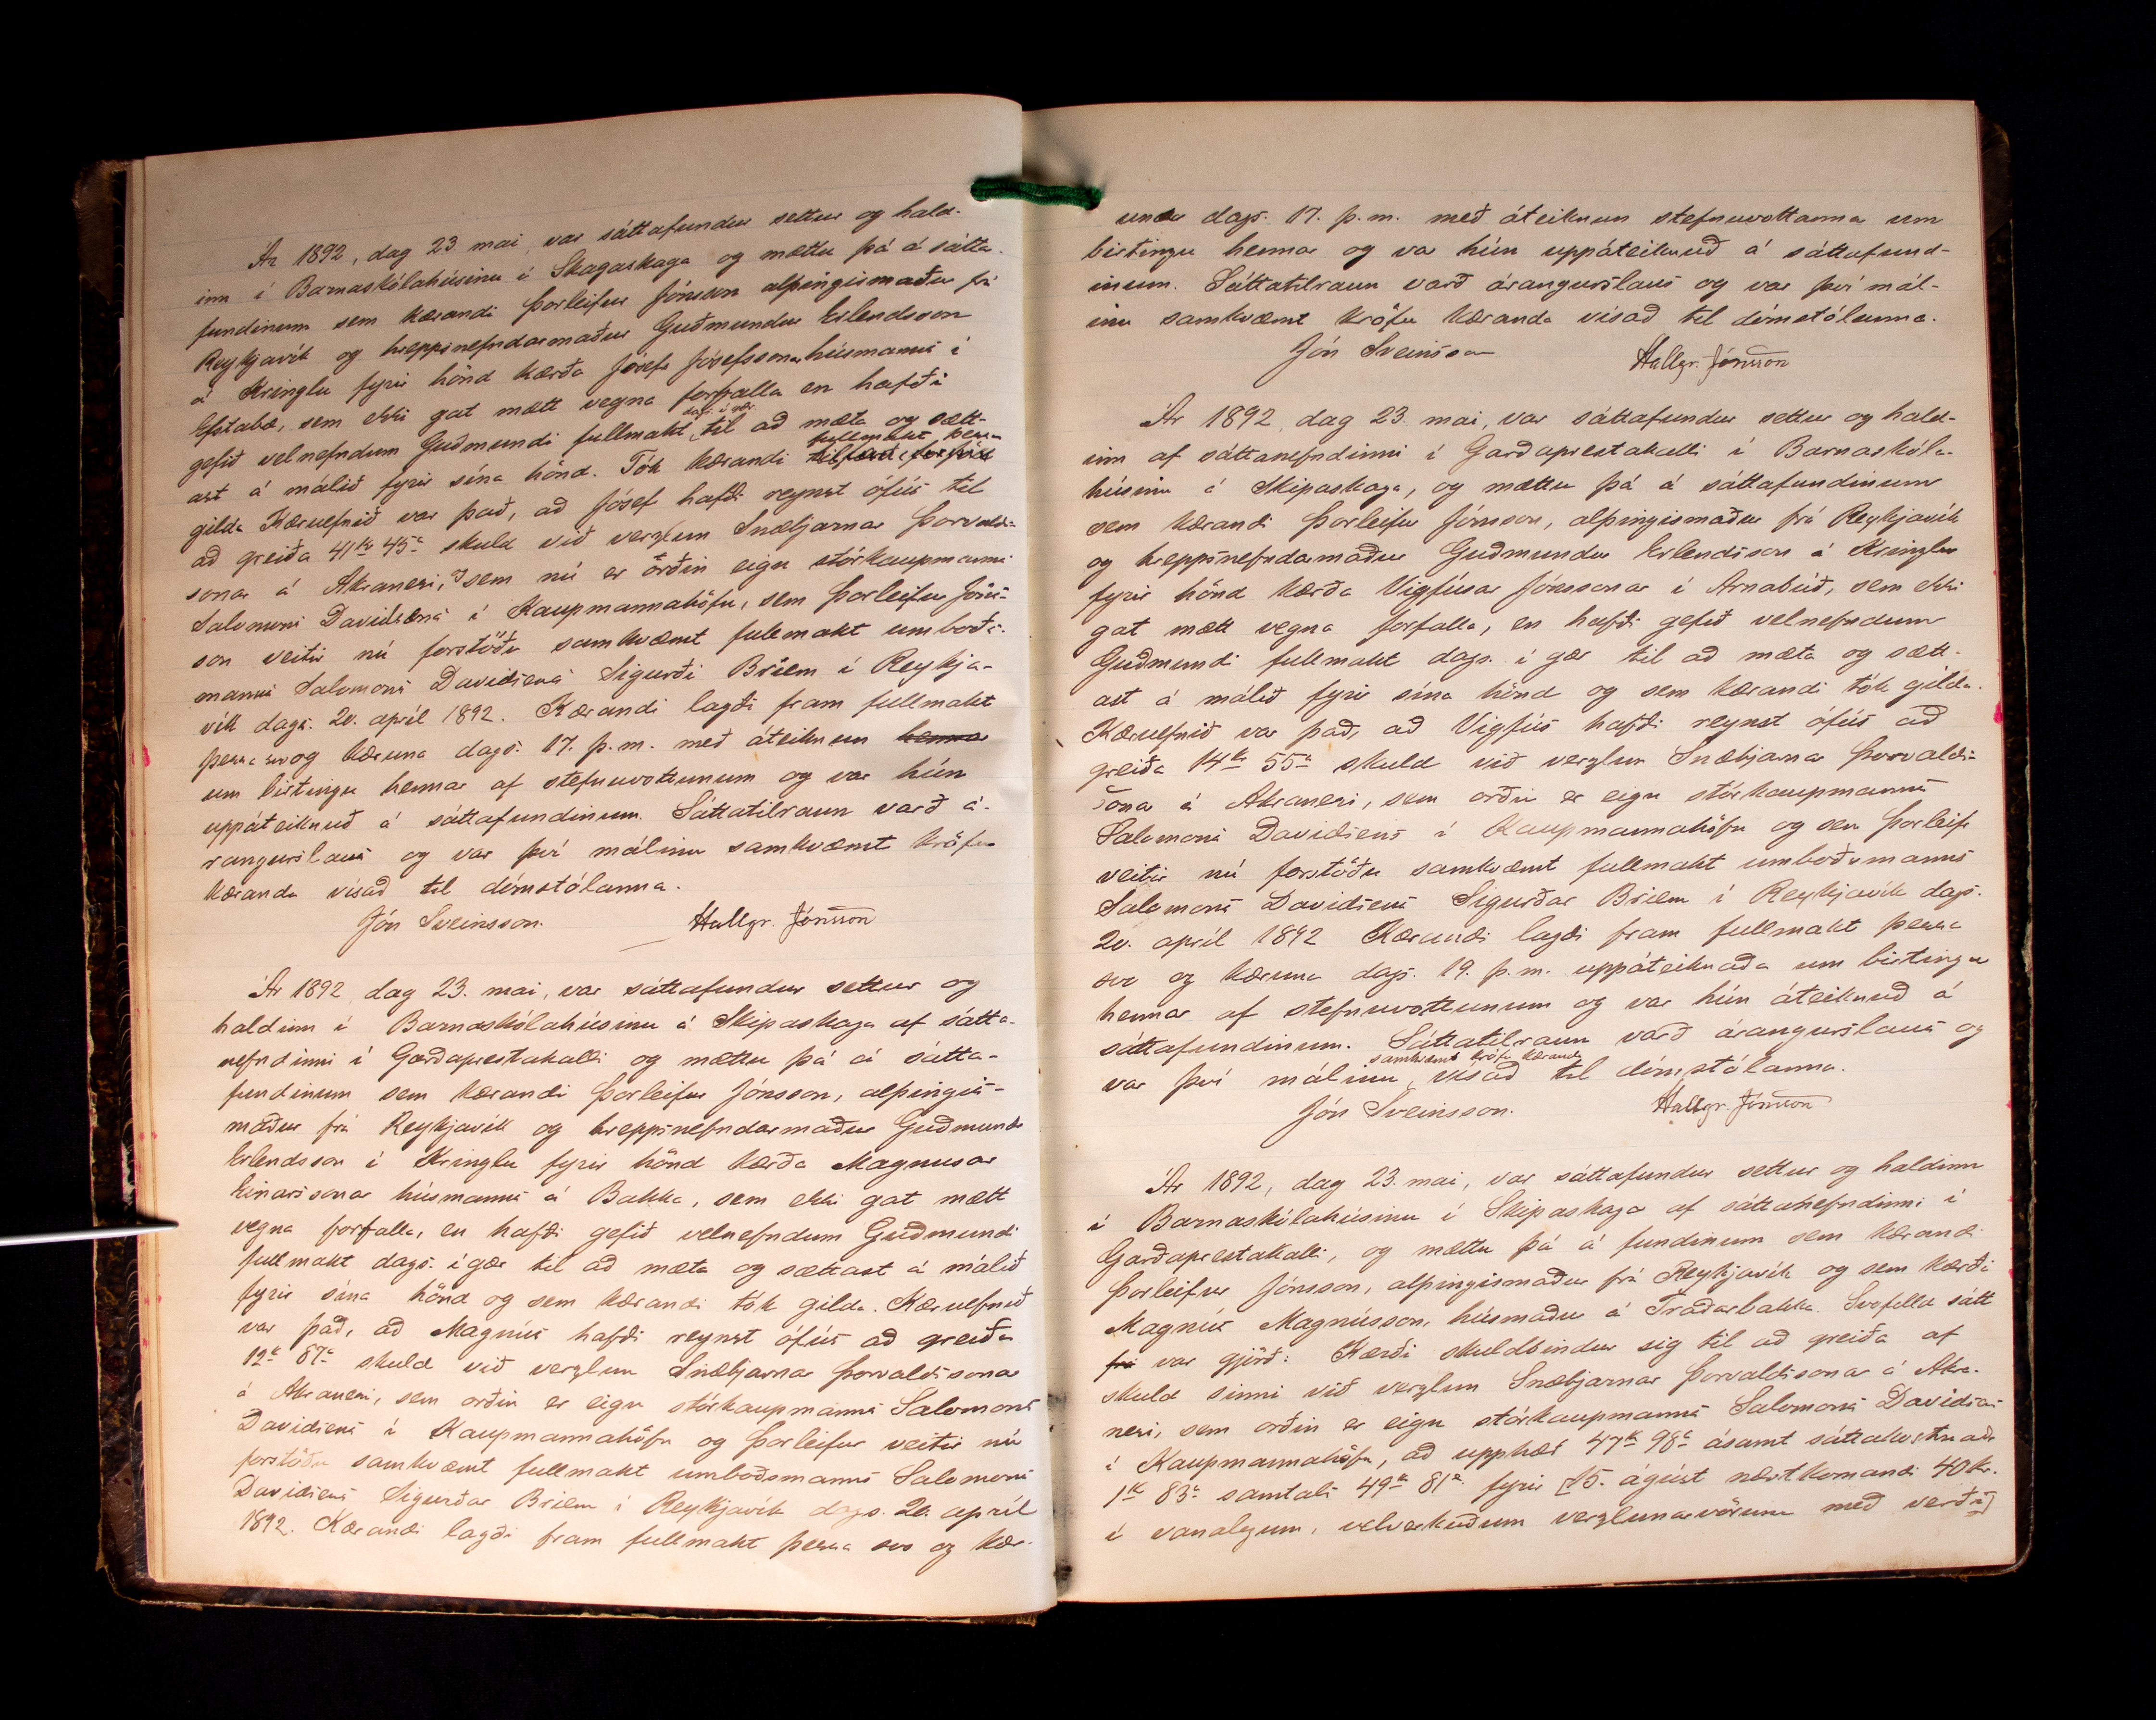 Ár 1892, dag 23. mai, var sáttafundur settur og hald-
inn í Barnaskólahúsinu í Skagaskaga og mættu þá á sátta-
fundinum sem kærandi Þorleifur Jónsson alþingismaður frá
Reykjavík og hreppsnefndarmaður Guðmundur Erlendsson
á Kringlu fyrir hönd kærða Jósefs Jósefssonar húsmanns í
Efstabæ, sem ekki gat mætt vegna forfalla en hafði
gefið velnefndum Guðmundi fullmakt dags. í gær til að mæta og sætt-
ast á málið fyrir sína hönd. Tók kærandi fullmakt þessa
gilda Kæruefnið var það, að Jósef hafði reynst ófús til
að greiða 41 kr 45 a skuld við verzlun Snæbjarnar Þorvalds-
sonar á Akranesi, sem nú er orðin eign stórkaupmanns
Salomons Davidsens í Kaupmannahöfn, sem Þorleifur Jóns-
son veitir nú forstöðu samkvæmt fullmakt umboðs-
manns Salomons Davidsens Sigurði Briem í Reykja-
vík dags. 20. apríl 1892. Kærandi lagði fram fullmakt
þessa svo og kæruna dags. 17. þ.m. með áteiknun hennar
um birtingu hennar af stefnuvottunum og var hún
uppáteiknuð á sáttafundinum. Sáttatilraun varð á-
rangurslaus og var því málinu samkvæmt kröfu
kæranda vísað til dómstólanna.
Jón Sveinsson. Hallgr. Jónsson
Ár 1892 dag 23. mai, var sáttafundur settur og
haldinn í Barnaskólahúsinu á Skipaskaga af sátta-
nefndinni í Garðaprestakalli og mættu þá á sátta-
fundinum sem kærandi Þorleifur Jónsson, alþingis-
maður frá Reykjavík og hreppsnefndarmaður Guðmundr
Erlendsson í Kringlu fyrir hönd kærða Magnusar
Einarssonar húsmanns á Bakka, sem ekki gat mætt
vegna forfalla, en hafði gefið velnefndum Guðmundi
fullmakt dags. í gær til að mæta og sættast á málið
fyrir sína hönd og sem kærandi tók gilda. Kæruefnið
var það, að Magnús hafði reynst ófús að greiða
12 kr 87 a skuld við verzlun Snæbjarnar Þorvaldssonar
á Akranesi, sem orðin er eign stórkaupmanns Salomons
Davidsens í Kaupmannahöfn og Þorleifur veitir nú
forstöðu samkvæmt fullmakt umboðsmanns Salomons
Davidsens Sigurðar Briem í Reykjavík dags. 20. apríl
1892. Kærandi lagði fram fullmakt þessa svo og kær-
una dags. 17. þ.m. með áteiknun stefnuvottanna um
birtingu hennar og var hún uppáteiknuð á sáttafund-
inum. Sáttatilraun varð árangurslaus og var því mál-
inu samkvæmt kröfu kæranda vísað til dómstólanna.
Jón Sveinsson Hallgr. Jónsson
Ár 1892, dag 23. mai, var sáttafundur settur og hald-
inn af sáttanefndinni í Garðaprestakalli í Barnaskóla-
húsinu á Skipaskaga, og mættu þá á sáttafundinum
sem kærandi Þorleifur Jónsson, alþingismaður frá Reykjavík
og hreppsnefndarmaður Guðmundur Erlendsson á Kringlu
fyrir hönd kærða Vigfúsar Jónssonar í Arnabúð, sem ekki
gat mætt vegna forfalla, en hafði gefið velnefndum
Guðmundi fullmakt dags. í gær til að mæta og sætt-
ast á málið fyrir sína hönd og sem kærandi tók gilda.
Kæruefnið var það, að Vigfús hafði reynst ófús að
greiða 14 kr 55 a skuld við verzlun Snæbjarnar Þorvalds-
sonar á Akranesi, sem orðin er eign stórkaupmanns
Salomons Davidsens í Kaupmannahöfn og sem Þorleifr
veitir nú forstöðu samkvæmt fullmakt umboðsmanns
Salomons Davidsens Sigurðar Briem í Reykjavík dags.
20. apríl 1892 Kærandi lagði fram fullmakt þessa
svo og kæruna dags. 19. þ.m. uppáteiknaða um birtingu
hennar af stefnuvottunum og var hún áteiknuð á
sáttafundinum. Sáttatilraun varð árangurslaus og
var því málinu samkvæmt kröfu kæranda vísað til dómstólanna.
Jón Sveinsson. Hallgr. Jónsson
Ár 1892, dag 23. mai, var sáttafundur settur og haldinn
í Barnaskólahúsinu í Skipaskaga af sáttanefndinni í
Garðaprestakalli, og mættu þá á fundinum sem kærandi
Þorleifur Jónsson, alþingismaður frá Reykjavík og sem kærði
Magnús Magnússon, húsmaður á Traðarbakka. Svofelld sátt
frá var gjörð: Kærði skuldbindur sig til að greiða af
skuld sinni við verzlun Snæbjarnar Þorvaldssonar á Akra-
nesi, sem orðin er eign stórkaupmanns Salomons Davidsens
í Kaupmannahöfn, að upphæð 47 kr 98 a ásamt sáttakostnaði
1 kr 83 a samtals 49 kr 81 a fyrir [15. ágúst næstkomandi 40 kr.
í vanalegum, velverkuðum verzlunarvörum með verði]